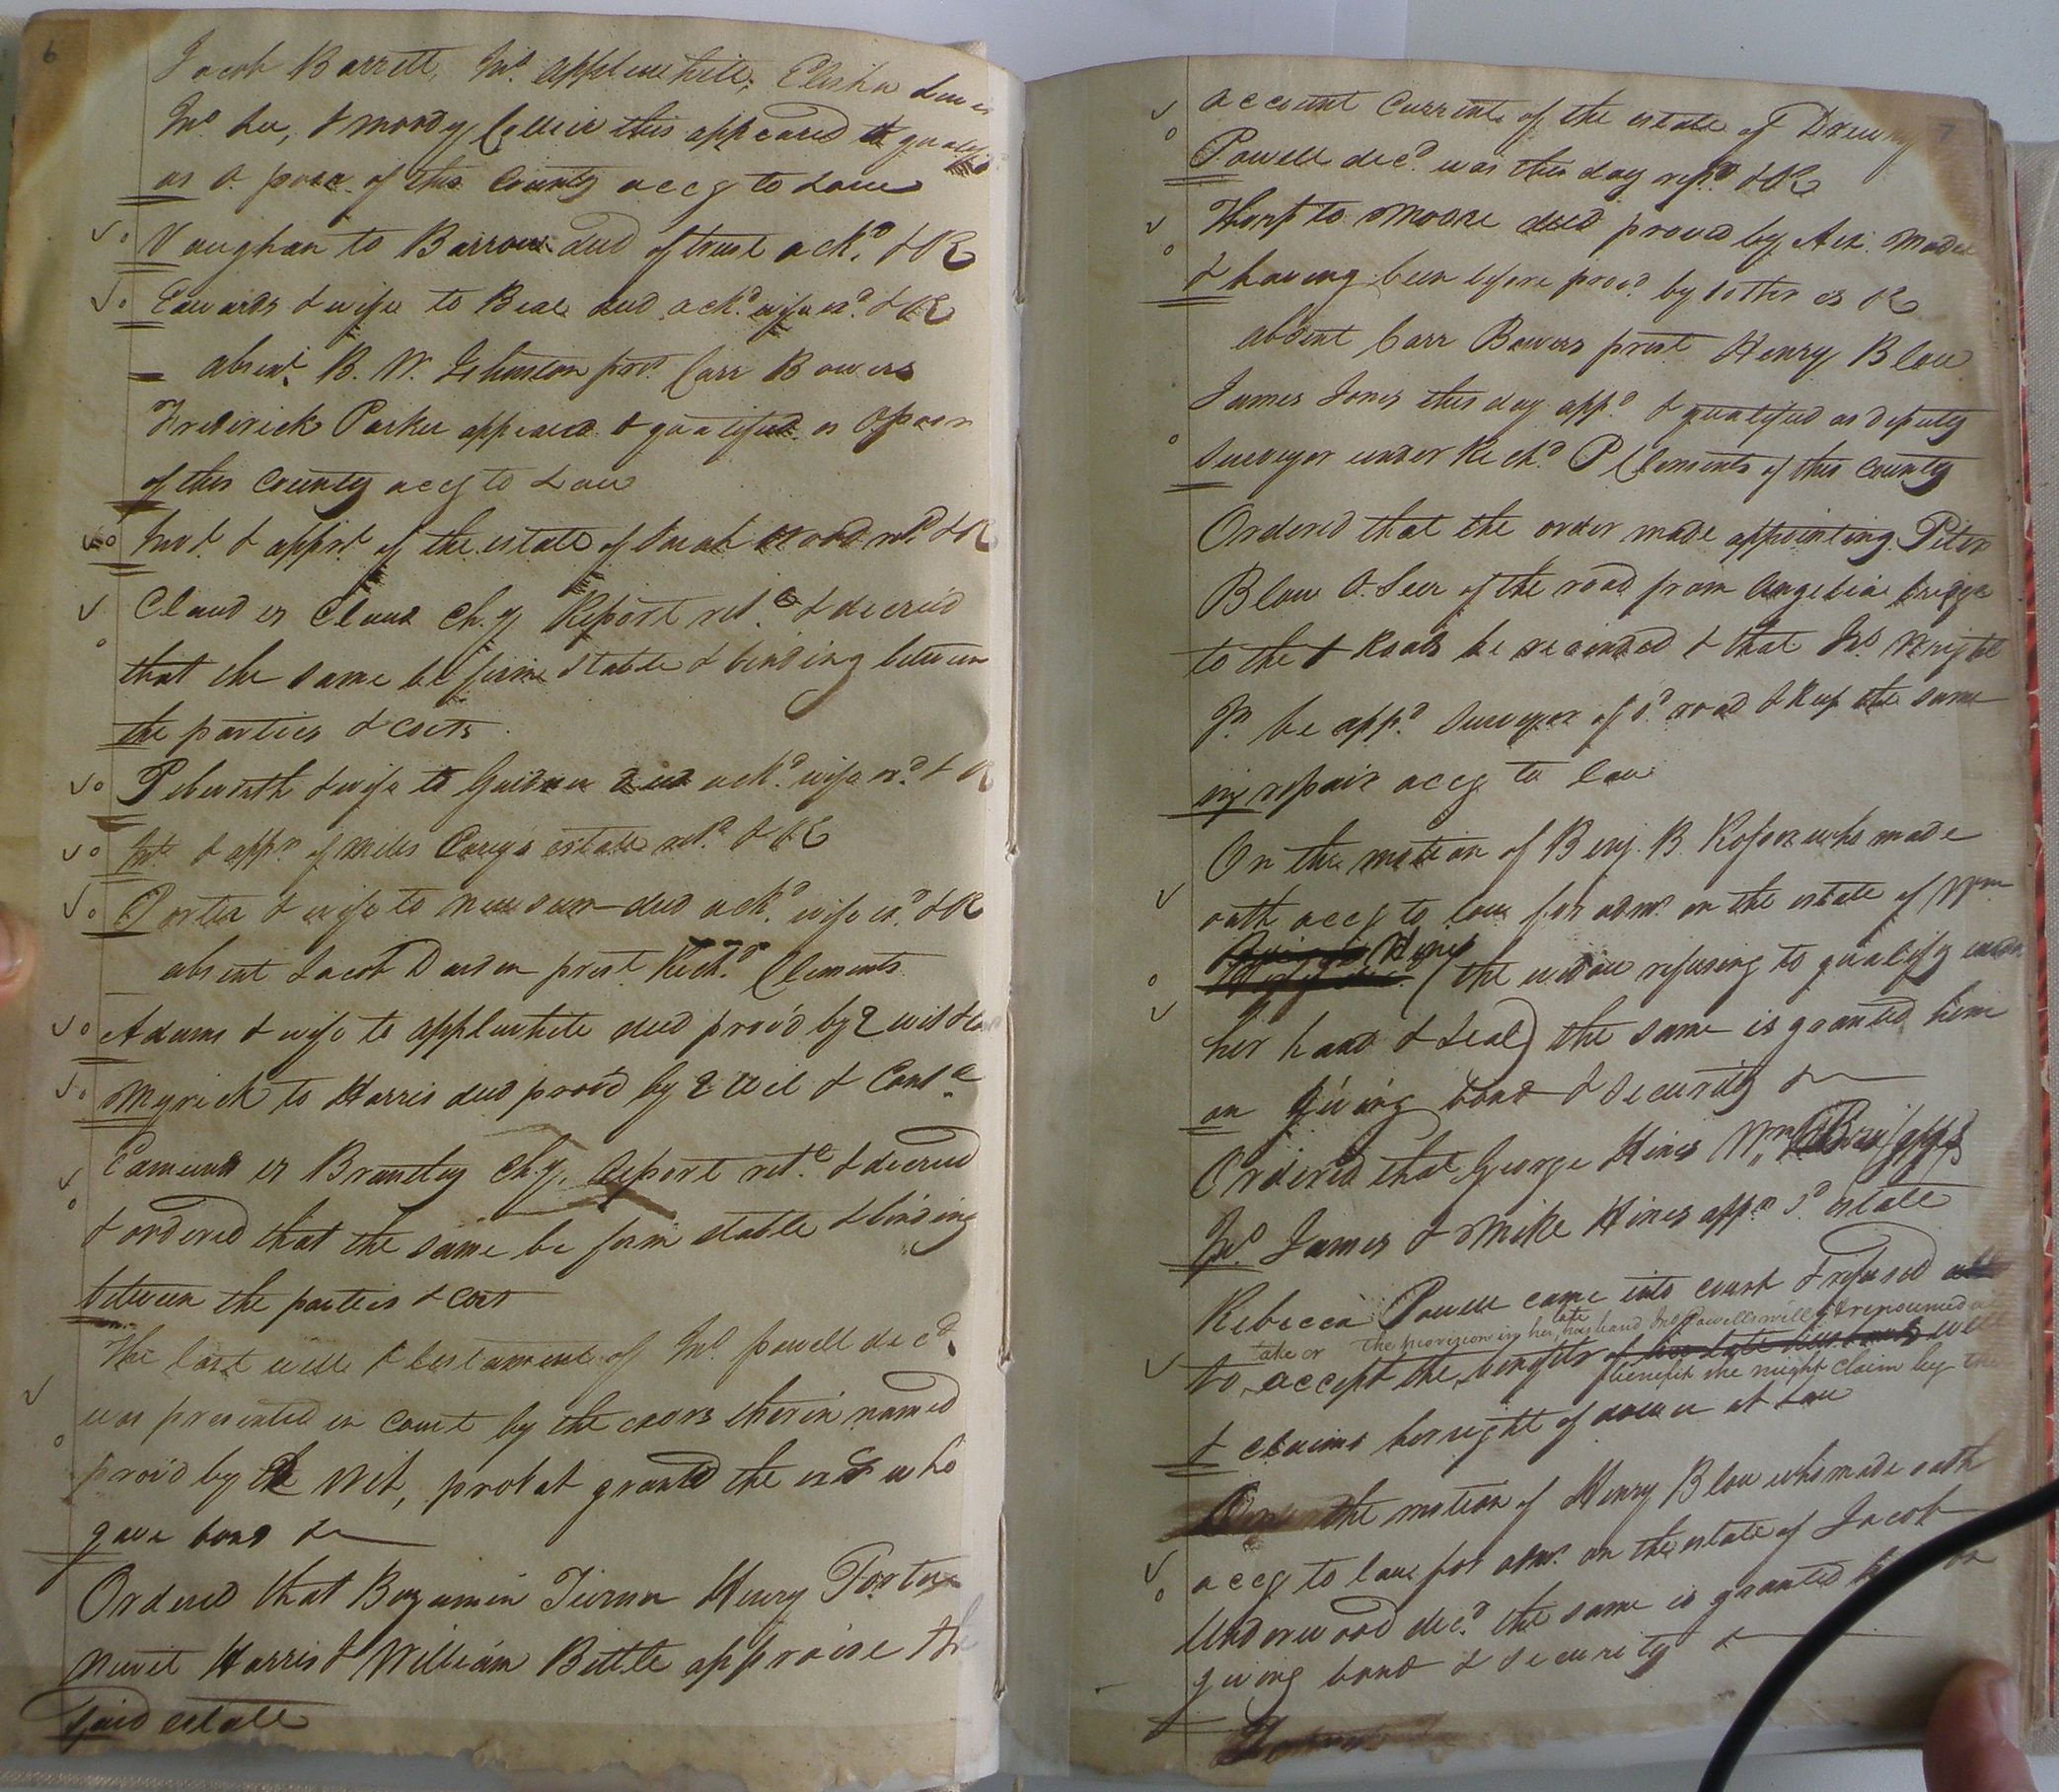 6
Jacob Barrett, Jno. Applewhite, Elisha
Jno. Lee, & Moody this appeared to
as O. poor of this County accg to Law
Vaughan to Barrow deed of trust ackd. & R
Edwards & wife to Beal deed ackd. wife exd. & R
absent B. W. Johnston prest. Carr Bowers
Frederick Parker appeared & qualified as O. poor
of this County accg to Law
Invt. & apprt. of the estate of retd & R
Claud vs Claud Ch.y Report retd. & decreed
that the same be firm stable & binding between
the parties & costs
& wife to deed ackd. wife exd. & R
Inty & appn. of Miles Carys estate retd. & R
Porter & wife to Newsum deed ackd. wife exd. & R
absent Jacob Darden prest. Richd. Clements
Adams & wife to Applewhite deed provd by 2 wit &
Myrick to Harris deed provd by 2 wit & Contd.
vs Brantley Chy. Report retd. & decreed
& ordered that the same be firm stable & binding
between the parties & cost
The last will & testament of Jno. Powell decd.
was presented in Court by the exors therein named
provd by the wit, probat granted the exrs who
gave bond &
Ordered that Benjamin Turner Henry Porter
Newit Harris & William Bittle appraise the
said estate
7
account current of the estate of Drewry
Powell decd. was this day retd & R
Tharp to Moore deed proved by Alx. Moore
& having been before provd. by 2 others is R
absent Carr Bowers prest Henry Blow
James Jones this day appd. & qualified as deputy
Surveyor under Richd. P Clements of this County
Ordered that the order made appointing Peter
Blow O. Seer of the road from Angelica bridge
to the Roads be recinded & that Jno. Wright
Jr. be appd. Surveyor of sd. road & keep the same
in repair accg to law
On the motion of Benj. B. who made
oath accg to law for admr. on the estate of Wm
Hines
(the widow refusing to qualify under
her hand & seal) the same is granted him
on giving bond & security &
Ordered that George Hines Wm
Jno. James & Mike Hines appr. sd. estate
Rebecca Powell came into court & refused
take or the provision in her late husband Jno Powells will & renounced all
to accept the benefits of her late husbands will
benefit she might claim by the
& claims her right of dower at Law
On the motion of Henry Blow who made oath
accg to law for admr. on the estate of Jacob
Underwood decd. the same is granted him on
giving bond & security &